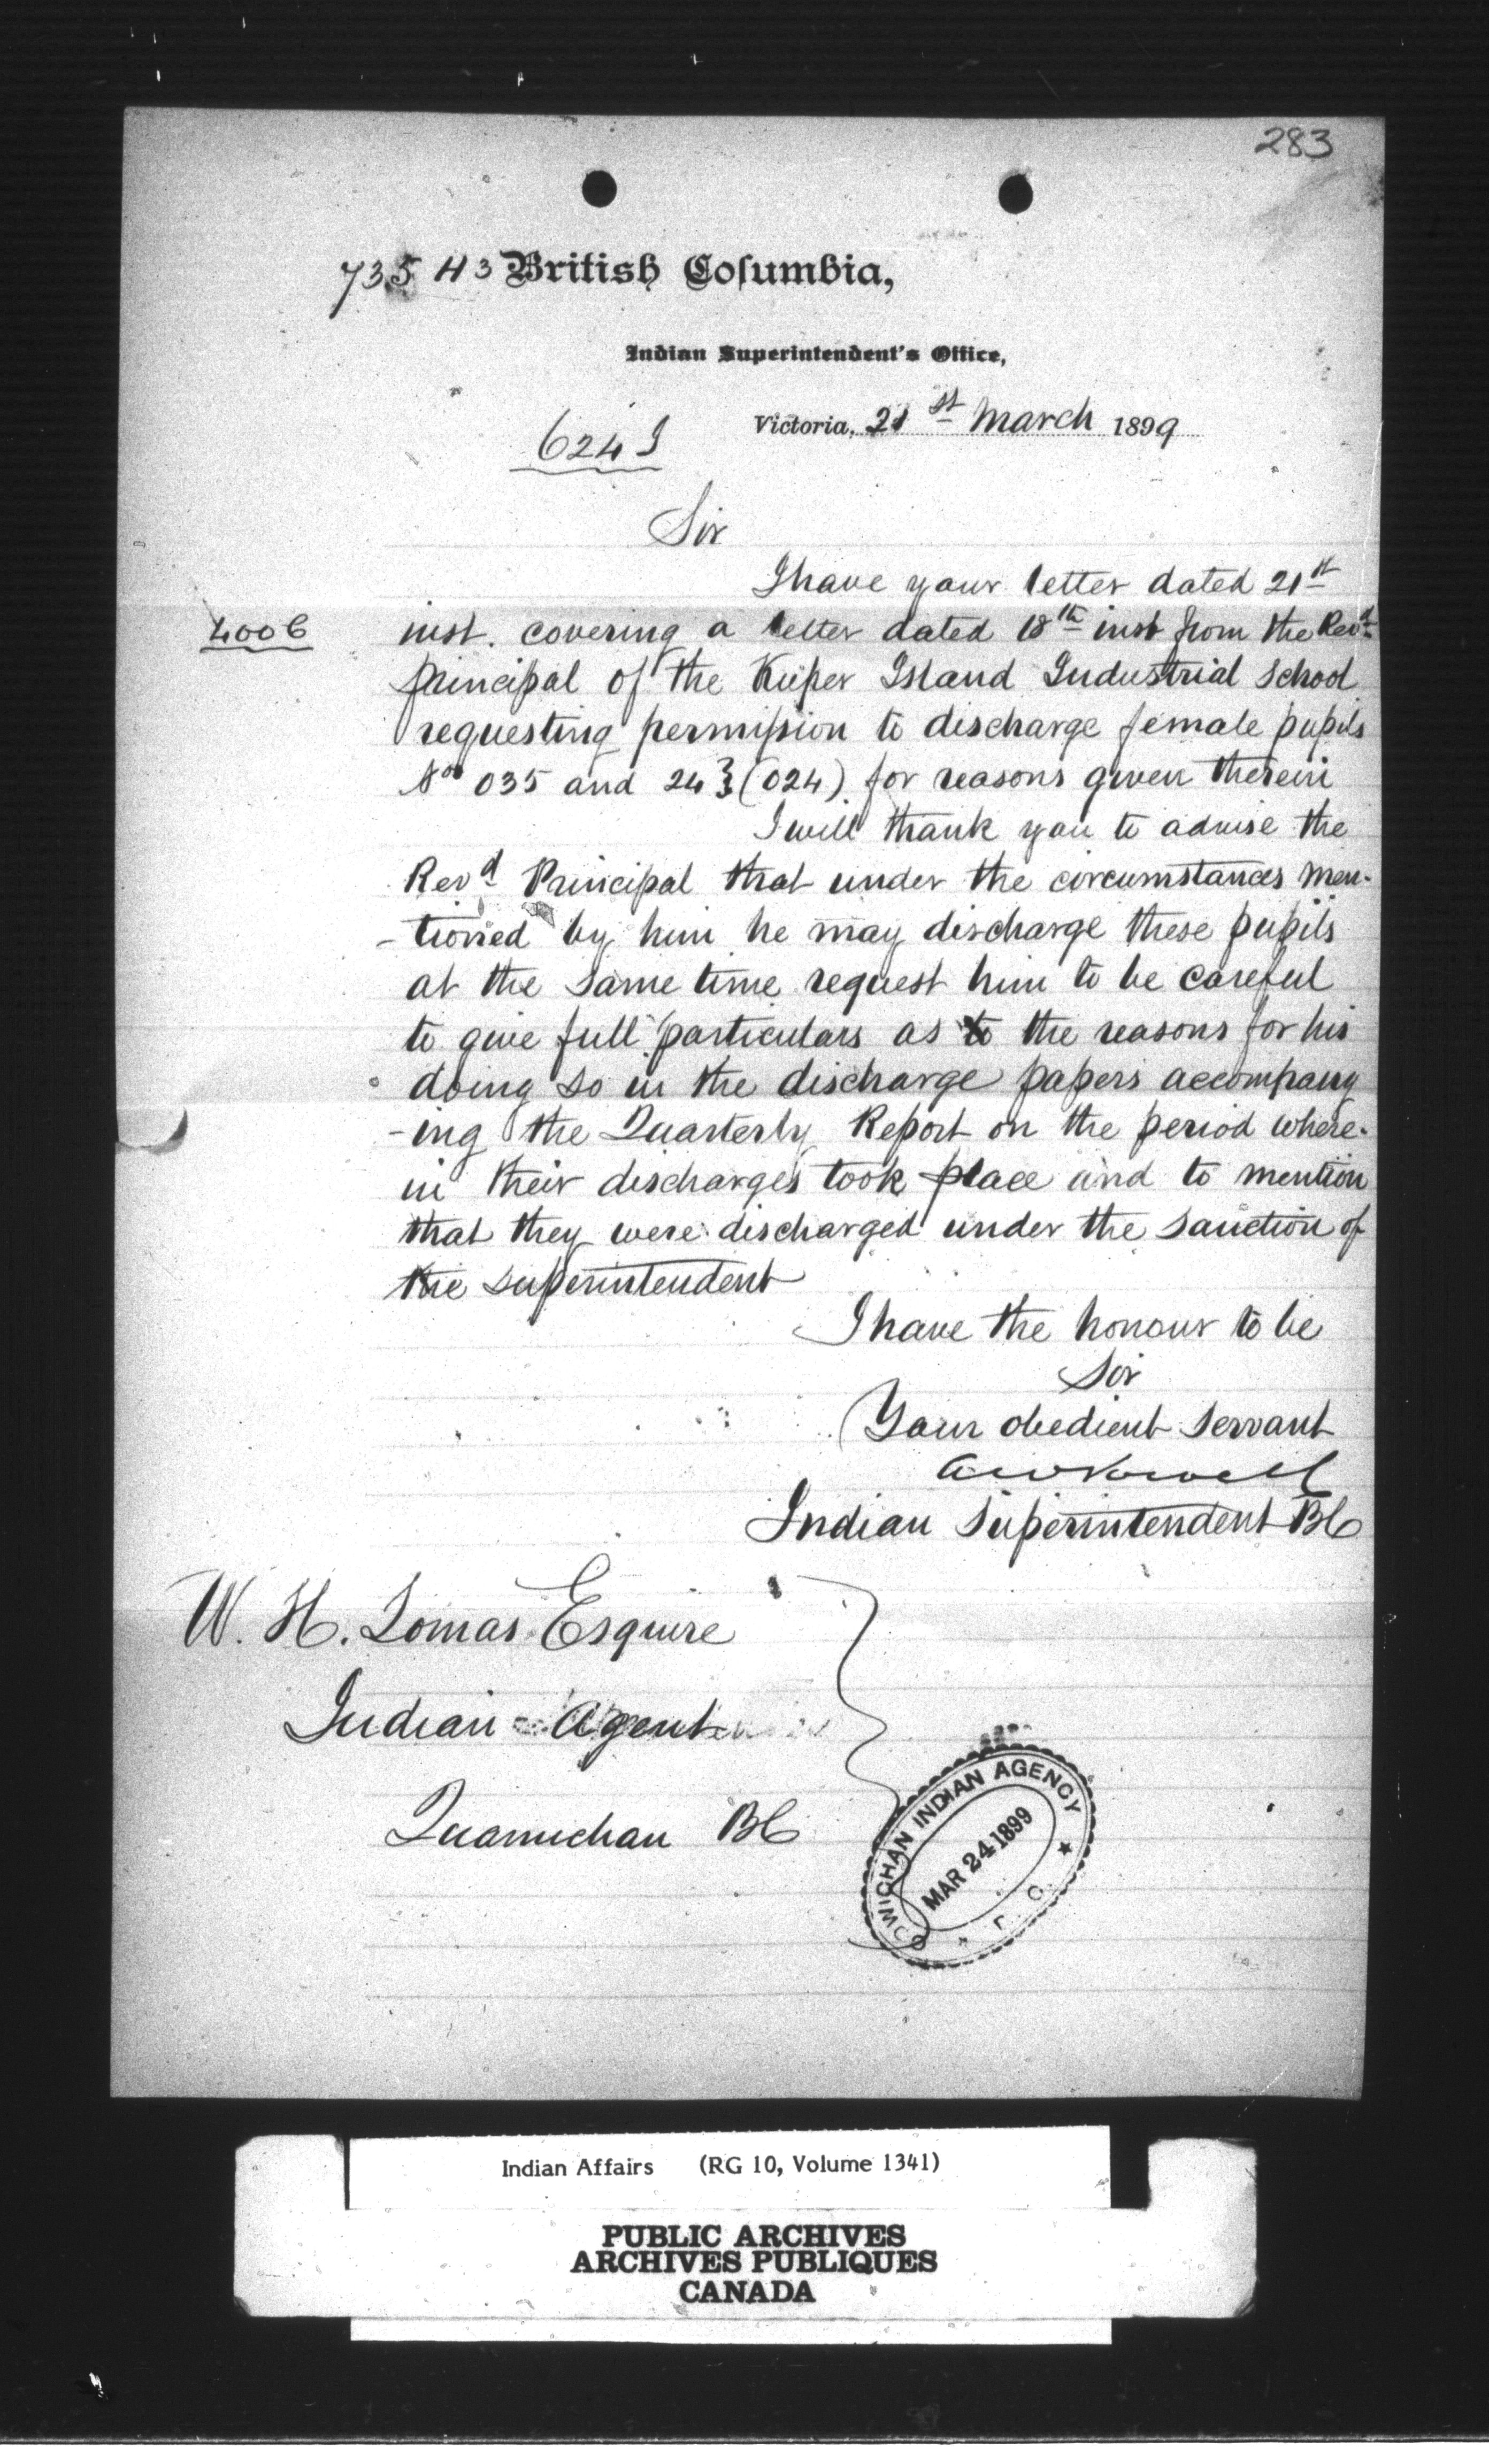 283
735 43 British Columbia,
Indian Superintendent's Office,
Victoria, 21st March 1899
Sir
I have your letter dated 21st
4006 inst. covering a letter dated 18th inst from the Revd
principal of the Kuper Island Industrial School
requesting permission to discharge female pupils
Nos 035 and 24 } (024) for reasons given therein
I will thank you to advise the
Revd Principal that under the circumstances men-
-tioned by him he may discharge these pupils
at the same time request him to be careful
to give full particulars as to the reasons for his
doing so in the discharge papers accompany
-ing the Quarterly Report on the period where-
in their discharges took place and to mention
that they were discharged under the sanction of
the Superintendent
I have the honour to be
Sir
Your obedient Servant
A W Vowell
Indian Superintendent BC
W. H. Lomas Esquire
Indian Agent
Quamichan BC
COWICHAN INDIAN AGENCY
MAR 24 1899
Indian Affairs (RG 10, Volume 1341)
PUBLIC ARCHIVES
ARCHIVES PUBLIQUES
CANADA